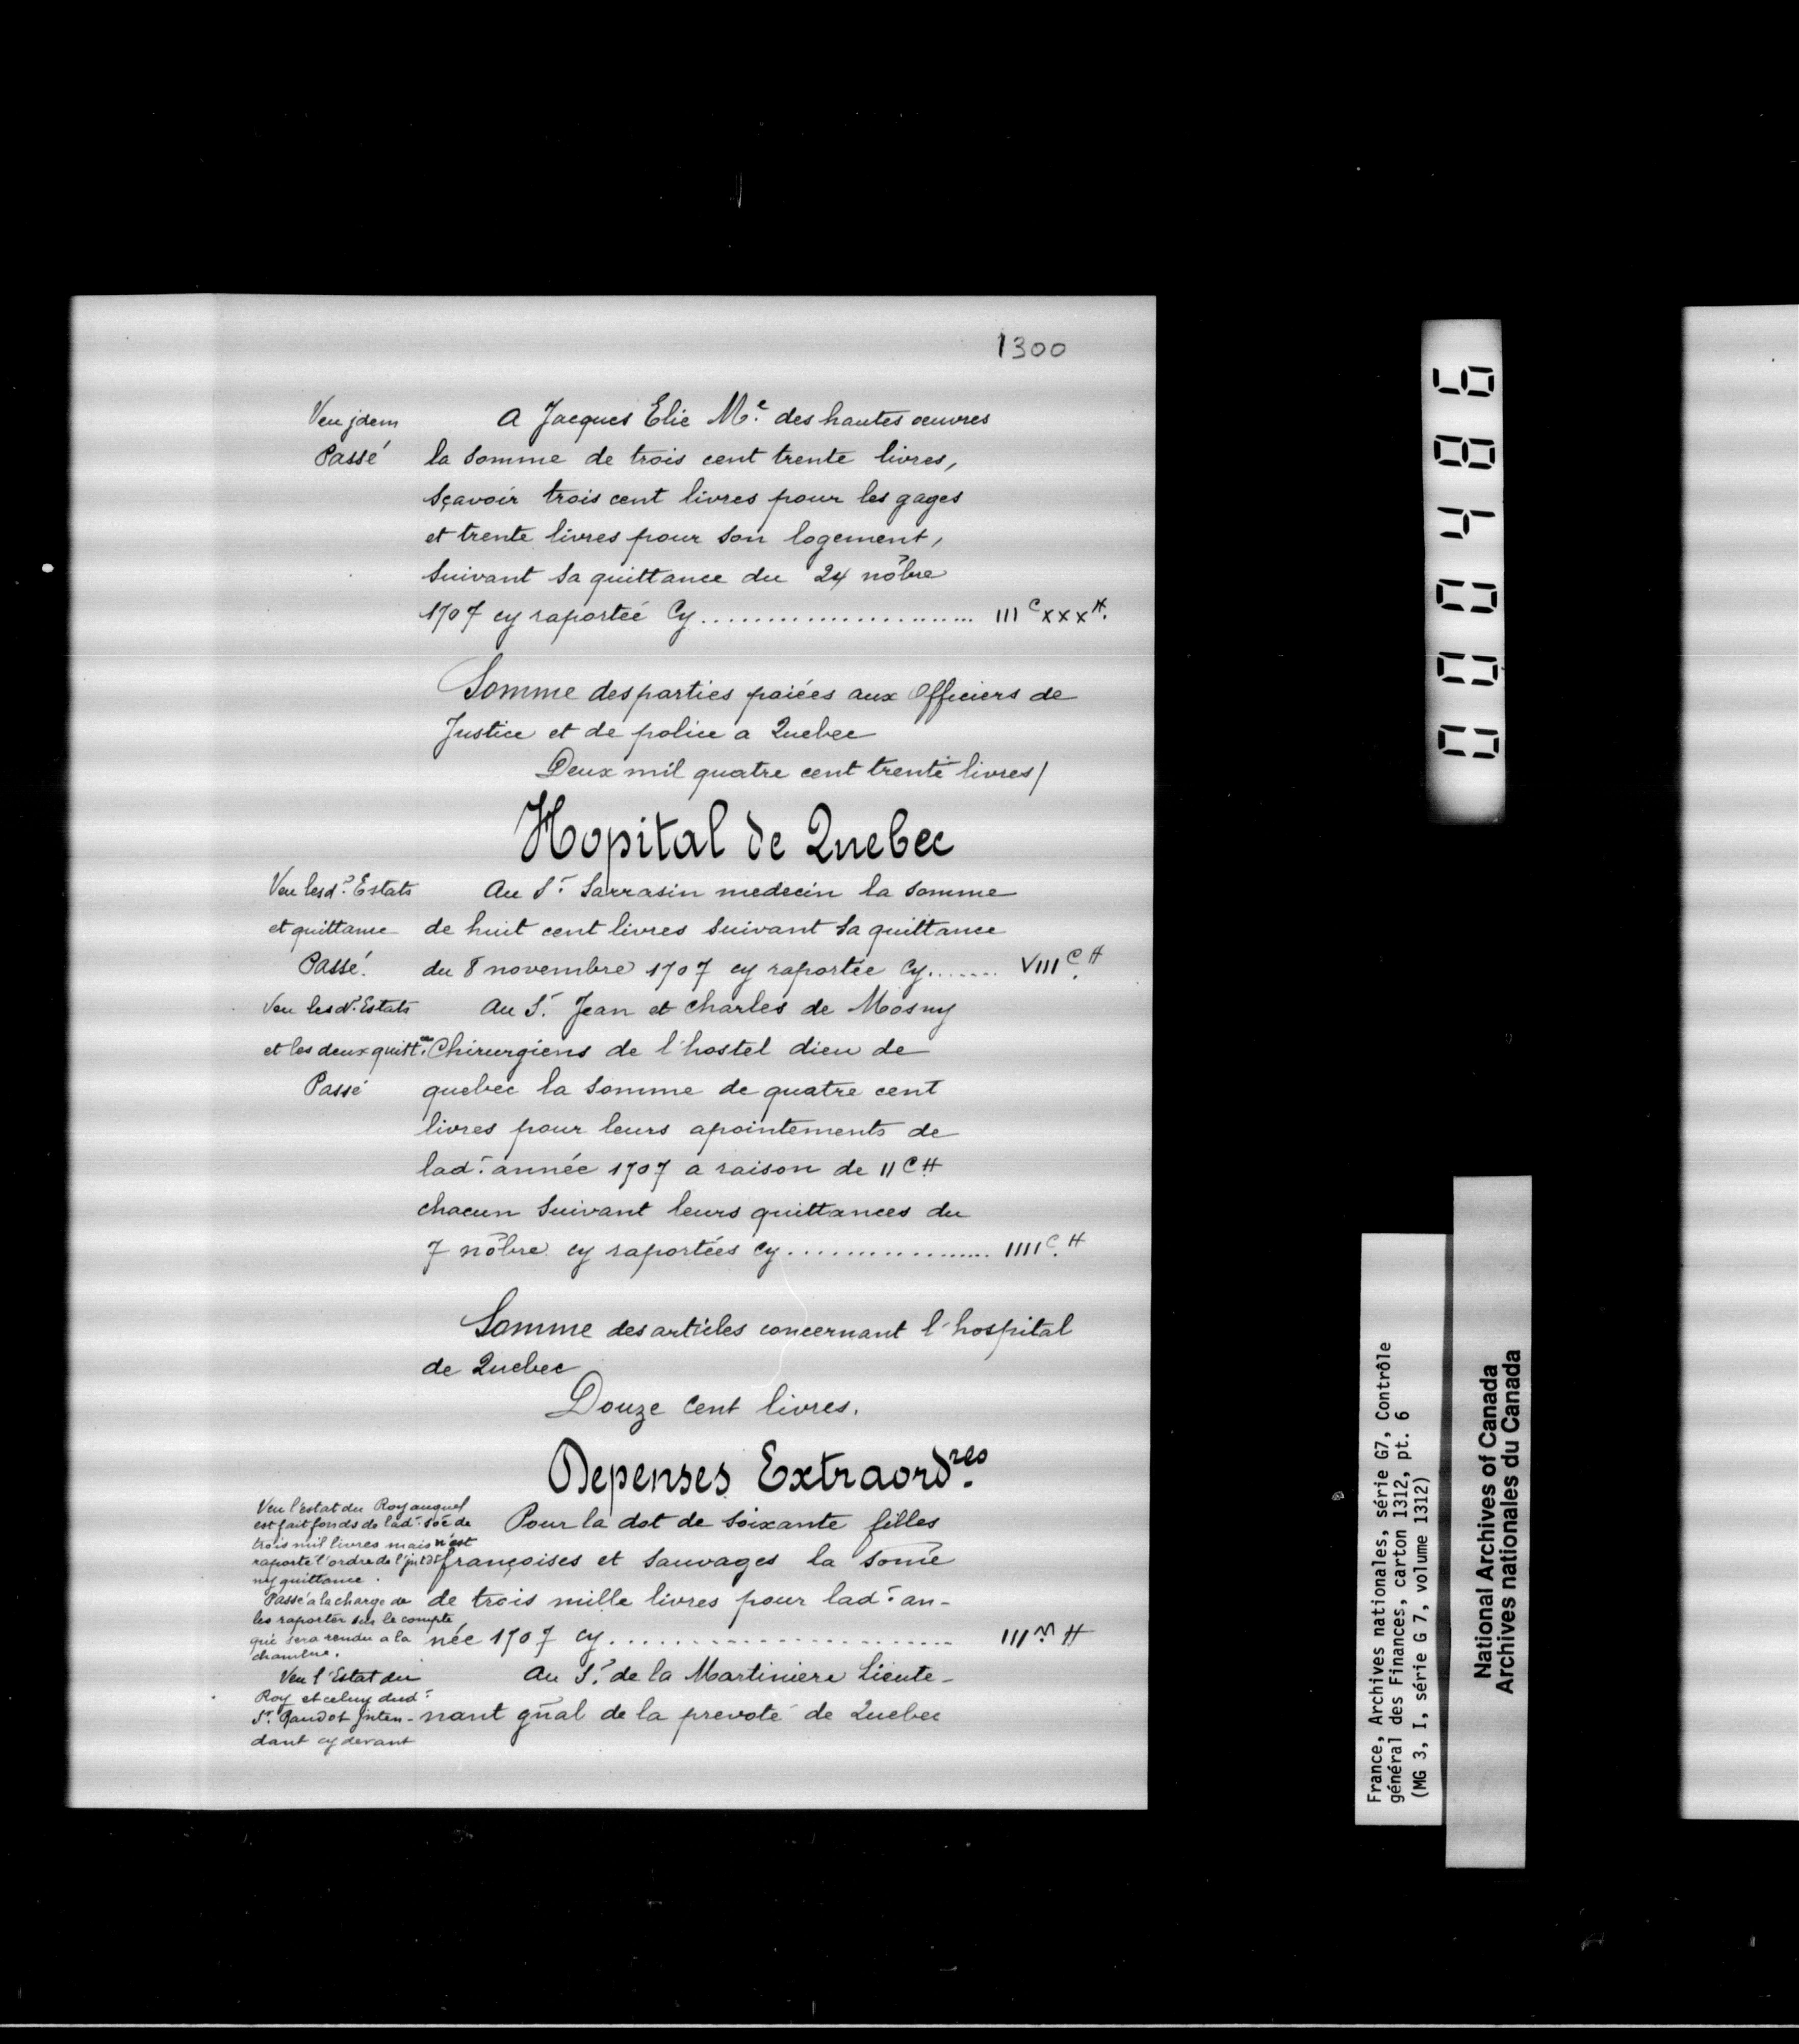 1300
Veu jdem
Passé
A Jacques Elie Mᵉ. des hautes oeuvres
la somme de trois cent trente livres,
sçavoir trois cent livres pour les gages
et trente livres pour son logement,
suivant sa quittance du 24 nōbre
1707 cy raportée Cy....................... III ᶜ xxx ᵗᵗ.
Somme des parties paiées aux Officiers de
Justice et de police a Quebec
Deux mil quatre cent trente livres/
Hopital de Quebec
Veu lesd. Estats
et quittance
Passé.
Au Sʳ. Sarrasin medecin la somme
de huit cent livres suivant sa quittance
du 8 novembre 1707 cy raportée Cy....... VIII ᶜ. ᵗᵗ
Veu lesd. Estats
et les deux quittᶜᵉˢ.
Passé
Au Sʳ. Jean et Charles de Mosny
Chirurgiens de l'hostel dieu de
quebec la somme de quatre cent
livres pour leurs apointements de
lad. année 1707 a raison de II C tt
chacun suivant leurs quittances du
7 nōbre cy raportées Cy.................. IIII ᶜ. ᵗᵗ
Somme des articles concernant l'hospital
de Quebec
Douze cent livres.
Depenses Extraordʳᵉˢ.
Veu l'estat du Roy auquel
est fait fonds de lad. soē de
trois mil livres mais n'est
raporté l'ordre de l'jntdt
ny quittance.
Passé a la charge de
les raporter sur le compte
qui sera rendu a la
chambre.
Pour la dot de soixante filles
françoises et sauvages la somē
de trois mille livres pour lad. an-
née 1707 Cy......................... III ᵐ. tt
Veu l'Estat du
Roy et celuy dud.
Sʳ. Raudot Jnten-
dant cy devant
Au Sʳ. de la Martiniere Lieute-
nant gñal de la prevoté de Quebec
000486
France, Archives nationales, série G7, Contrôle
général des Finances, carton 1312, pt. 6
(MG 3, I, série G 7, volume 1312)
National Archives of Canada
Archives nationales du Canada